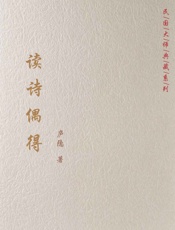 民国大师典藏系列
读诗偶得
庐隐 著